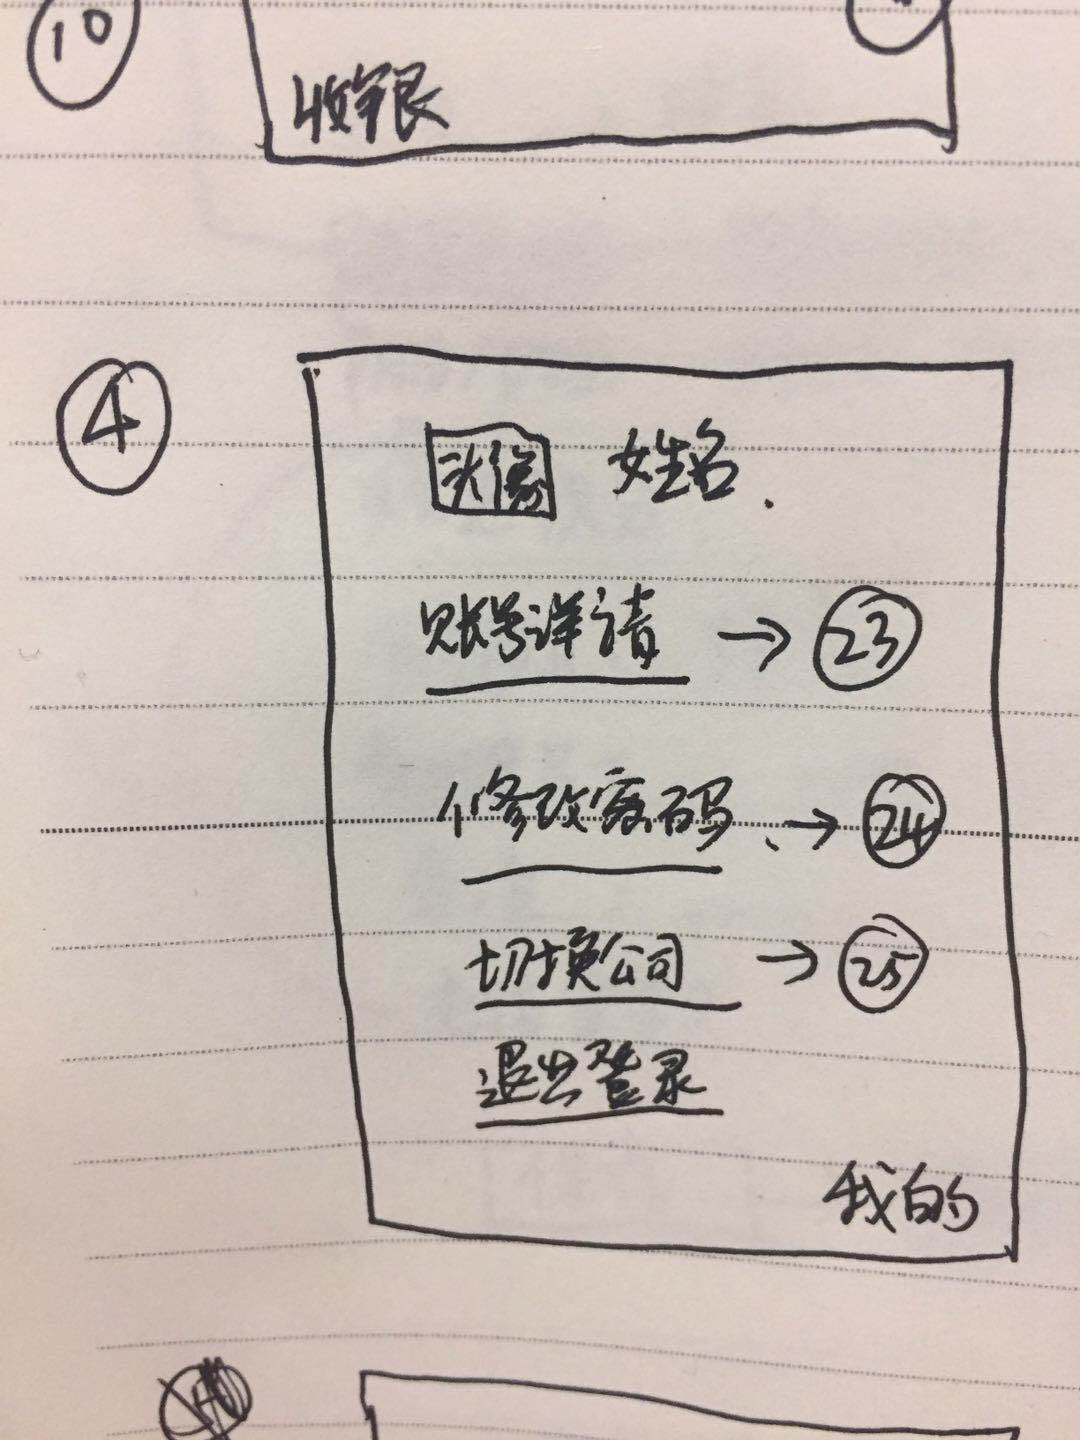 10
收银
4
头像 姓名.
账号详请 → 23
修改密码、→ 24
切换公司 → 25
退出登录
我的